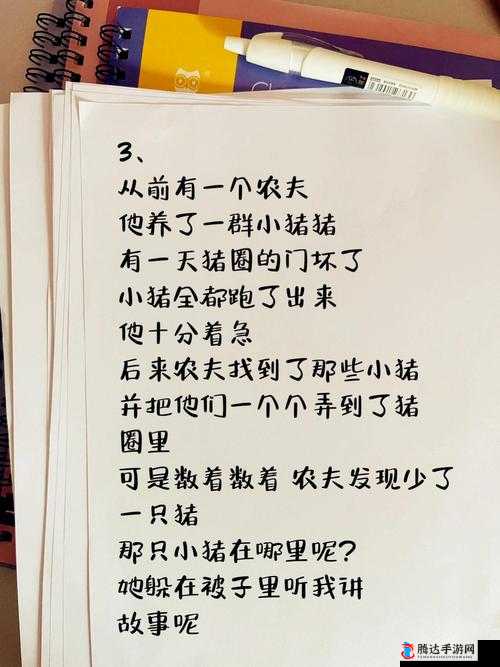 3、
从前有一个农夫
他养了一群小猪猪
有一天猪圈的门坏了
小猪全都跑了出来
他十分着急
后来农夫找到了那些小猪
并把他们一个个弄到了猪
圈里
可是数着数着 农夫发现少了
一只猪
那只小猪在哪里呢?
她躲在被子里听我讲
故事呢
腾达手游网